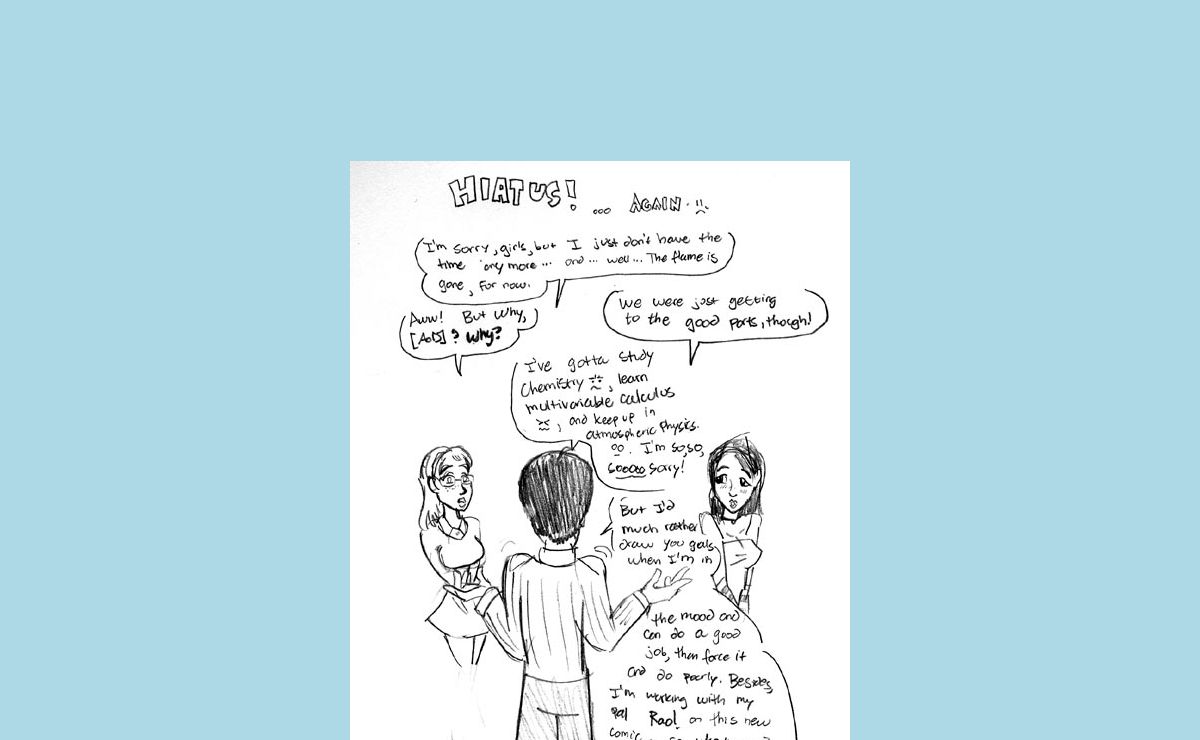 HIATUS! ... AGAIN
I'm sorry, girls, but I just don't have the
time any more ... and ... well ... The flame is
gone, for now.
We were just getting
to the good parts, though!
Aww! But why,
? Why?
I've gotta study
Chemistry , learn
multivariable calculus
, and keep up in
atmospheric physics.
. I'm so, so,
sooooo sorry!
But I'd
much rather
draw you gals
when I'm in
the mood and
can do a good
job, then force it
and do poorly. Besides,
I'm working with my
pal Raol on this new
comic